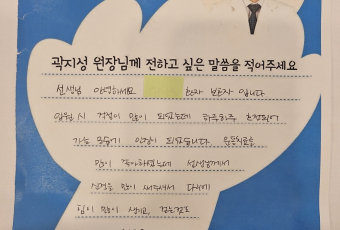 곽지성 원장님께 전하고 싶은 말씀을 적어주세요
선생님 안녕하세요 환자 보호자 입니다
입원 시 걱정이 많이 되었는데 하루하루
가는 모습이 안심이 되었습니다
많이 좋아하셨는데 선생님께서
신경을 많이 써주셔서 다시
힘이 많이 생기고, 걷는것도